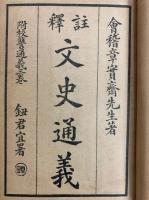 會稽章實齋先生著
註釋
文史通義
附校讐通義三卷
鈕君宜署